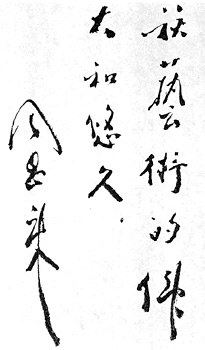 祝藝術的偉
大和悠久.
周恩來